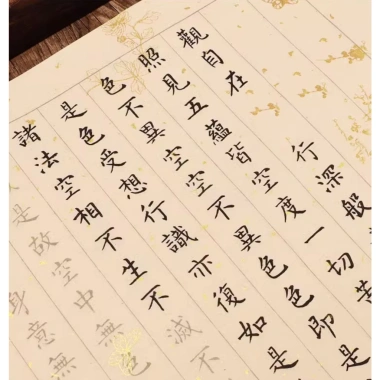 觀自在行深般
照見五蘊皆空度一切苦
色不異空空不異色色即是
是色受想行識亦復如是
諸法空相不生不滅不
是故空中無色
身意無